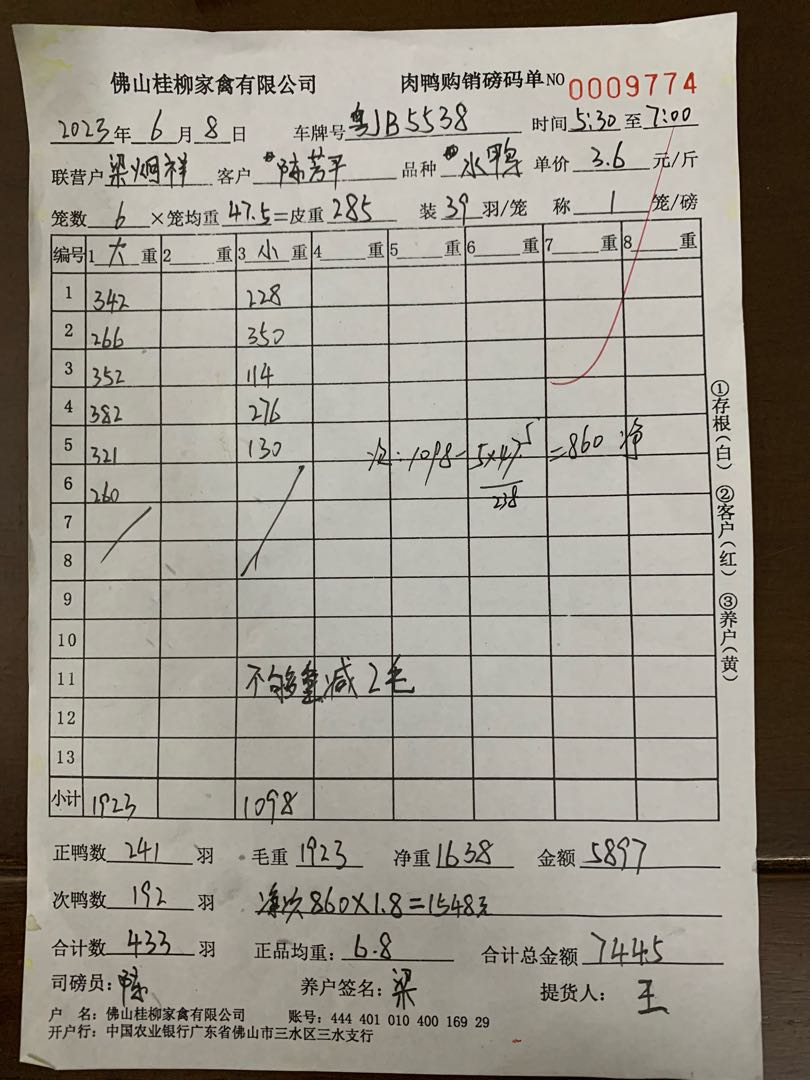 佛山桂柳家禽有限公司 肉鸭购销磅码单NO 0009774
2023年6月8日 车牌号粤JB5538 时间5:30至7:00
联营户梁炯祥 客户陈芳平 品种水鸭 单价3.6元/斤
笼数6×笼均重47.5=皮重285 装39羽/笼 称1笼/磅
编号 1大重 2重 3小重 4重 5重 6重 7重 8重
1 342 228
2 266 350
3 352 114
4 382 276
5 321 130 次:1098-5×47.5=860净
238
6 260
7
8
9
10
11 不够重减2毛
12
13
小计 1923 1098
正鸭数241羽 毛重1923 净重1638 金额5897
次鸭数192羽 净次860×1.8=1548元
合计数433羽 正品均重:6.8 合计总金额7445
司磅员:陈 养户签名:梁 提货人:王
户 名:佛山桂柳家禽有限公司 账号:444 401 010 400 169 29
开户行:中国农业银行广东省佛山市三水区三水支行
①存根(白) ②客户(红) ③养户(黄)